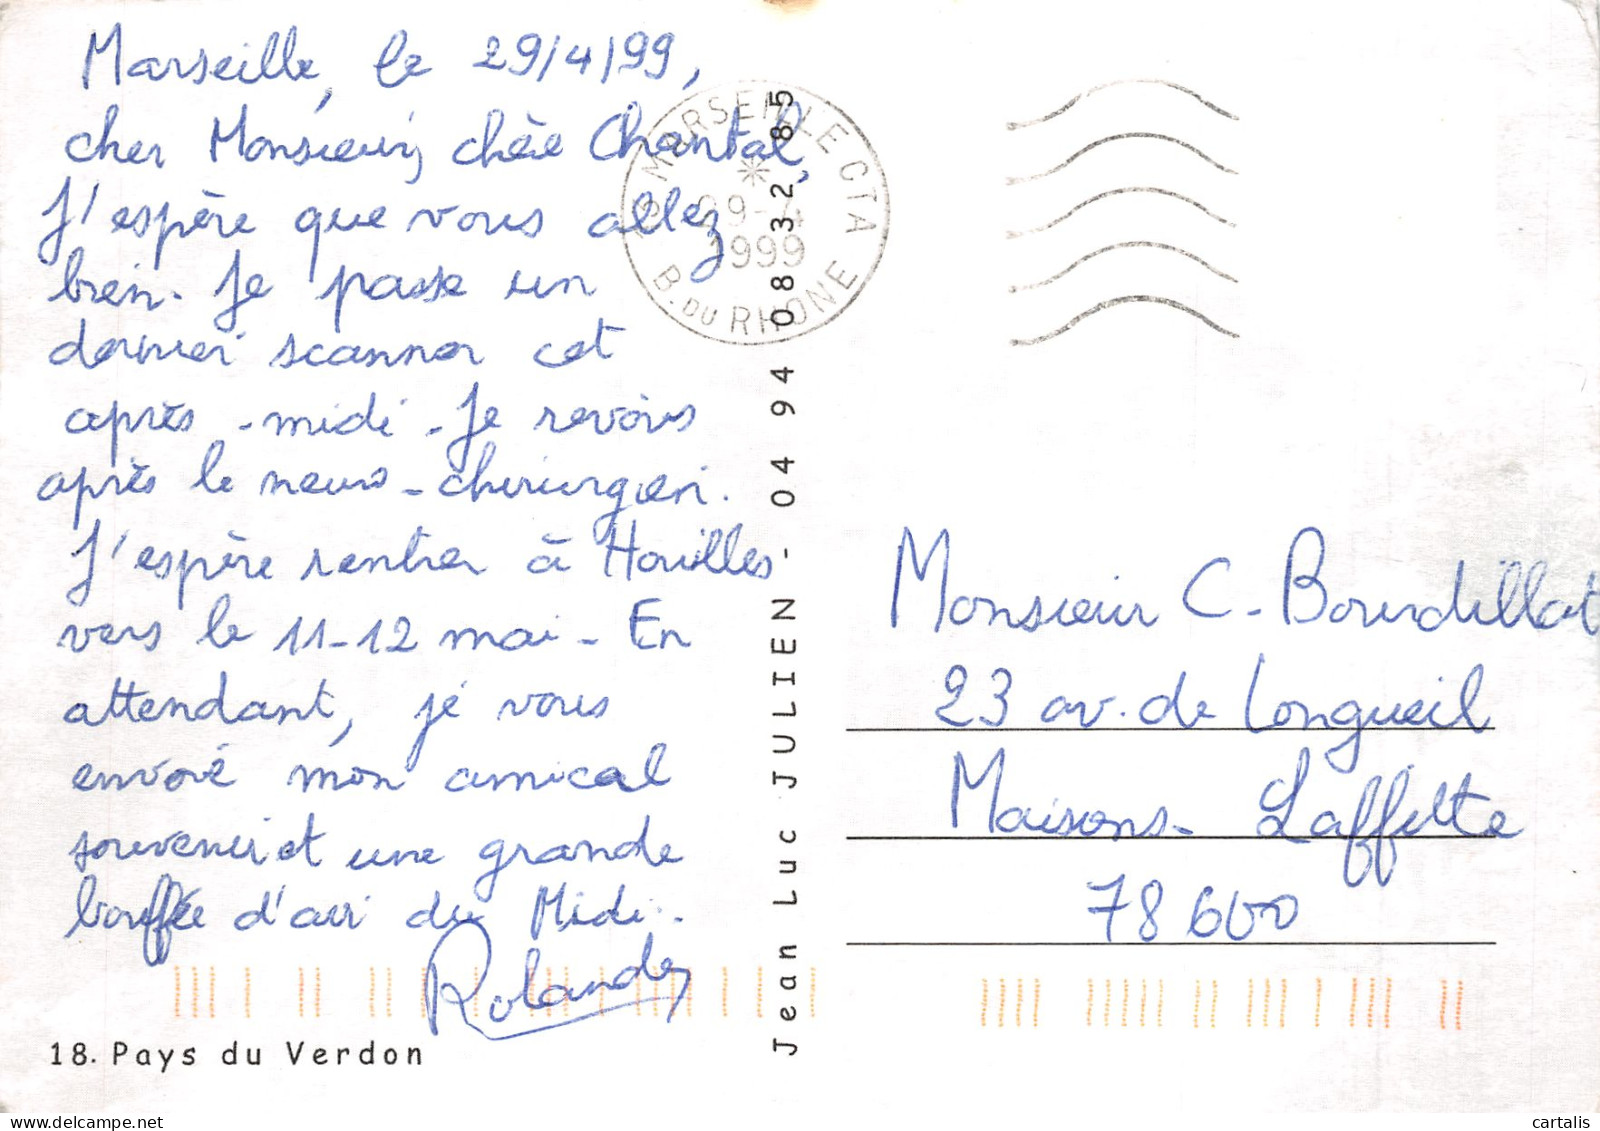 Marseille, le 29/4/99,
cher Monsieur, chère Chantal,
J'espère que vous allez
bien. Je passe un
dernier scanner cet
après-midi - Je revois
après le neuro-chirurgien.
J'espère rentrer à Houilles
vers le 11-12 mai - En
attendant, je vous
envoie mon amical
souvenir et une grande
bouffée d'air du Midi.
Rolande
18. Pays du Verdon
Jean Luc JULIEN - 04 94 08 32 85
MARSEILLE CTA
29-4
1999
B. DU RHONE
Monsieur C. Bourdillat
23 av. de Longueil
Maisons-Laffitte
78600
cartalis